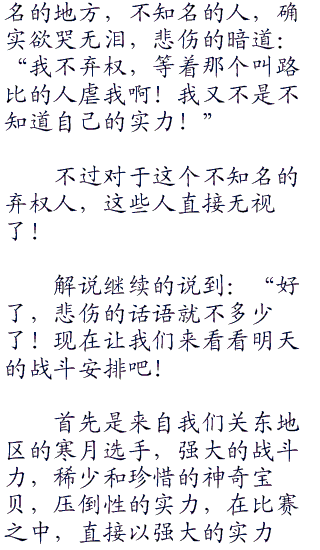 名的地方，不知名的人，确
实欲哭无泪，悲伤的暗道：
“我不弃权，等着那个叫路
比的人虐我啊！我又不是不
知道自己的实力！”
不过对于这个不知名的
弃权人，这些人直接无视
了！
解说继续的说到：“好
了，悲伤的话语就不多少
了！现在让我们来看看明天
的战斗安排吧！
首先是来自我们关东地
区的寒月选手，强大的战斗
力，稀少和珍惜的神奇宝
贝，压倒性的实力，在比赛
之中，直接以强大的实力